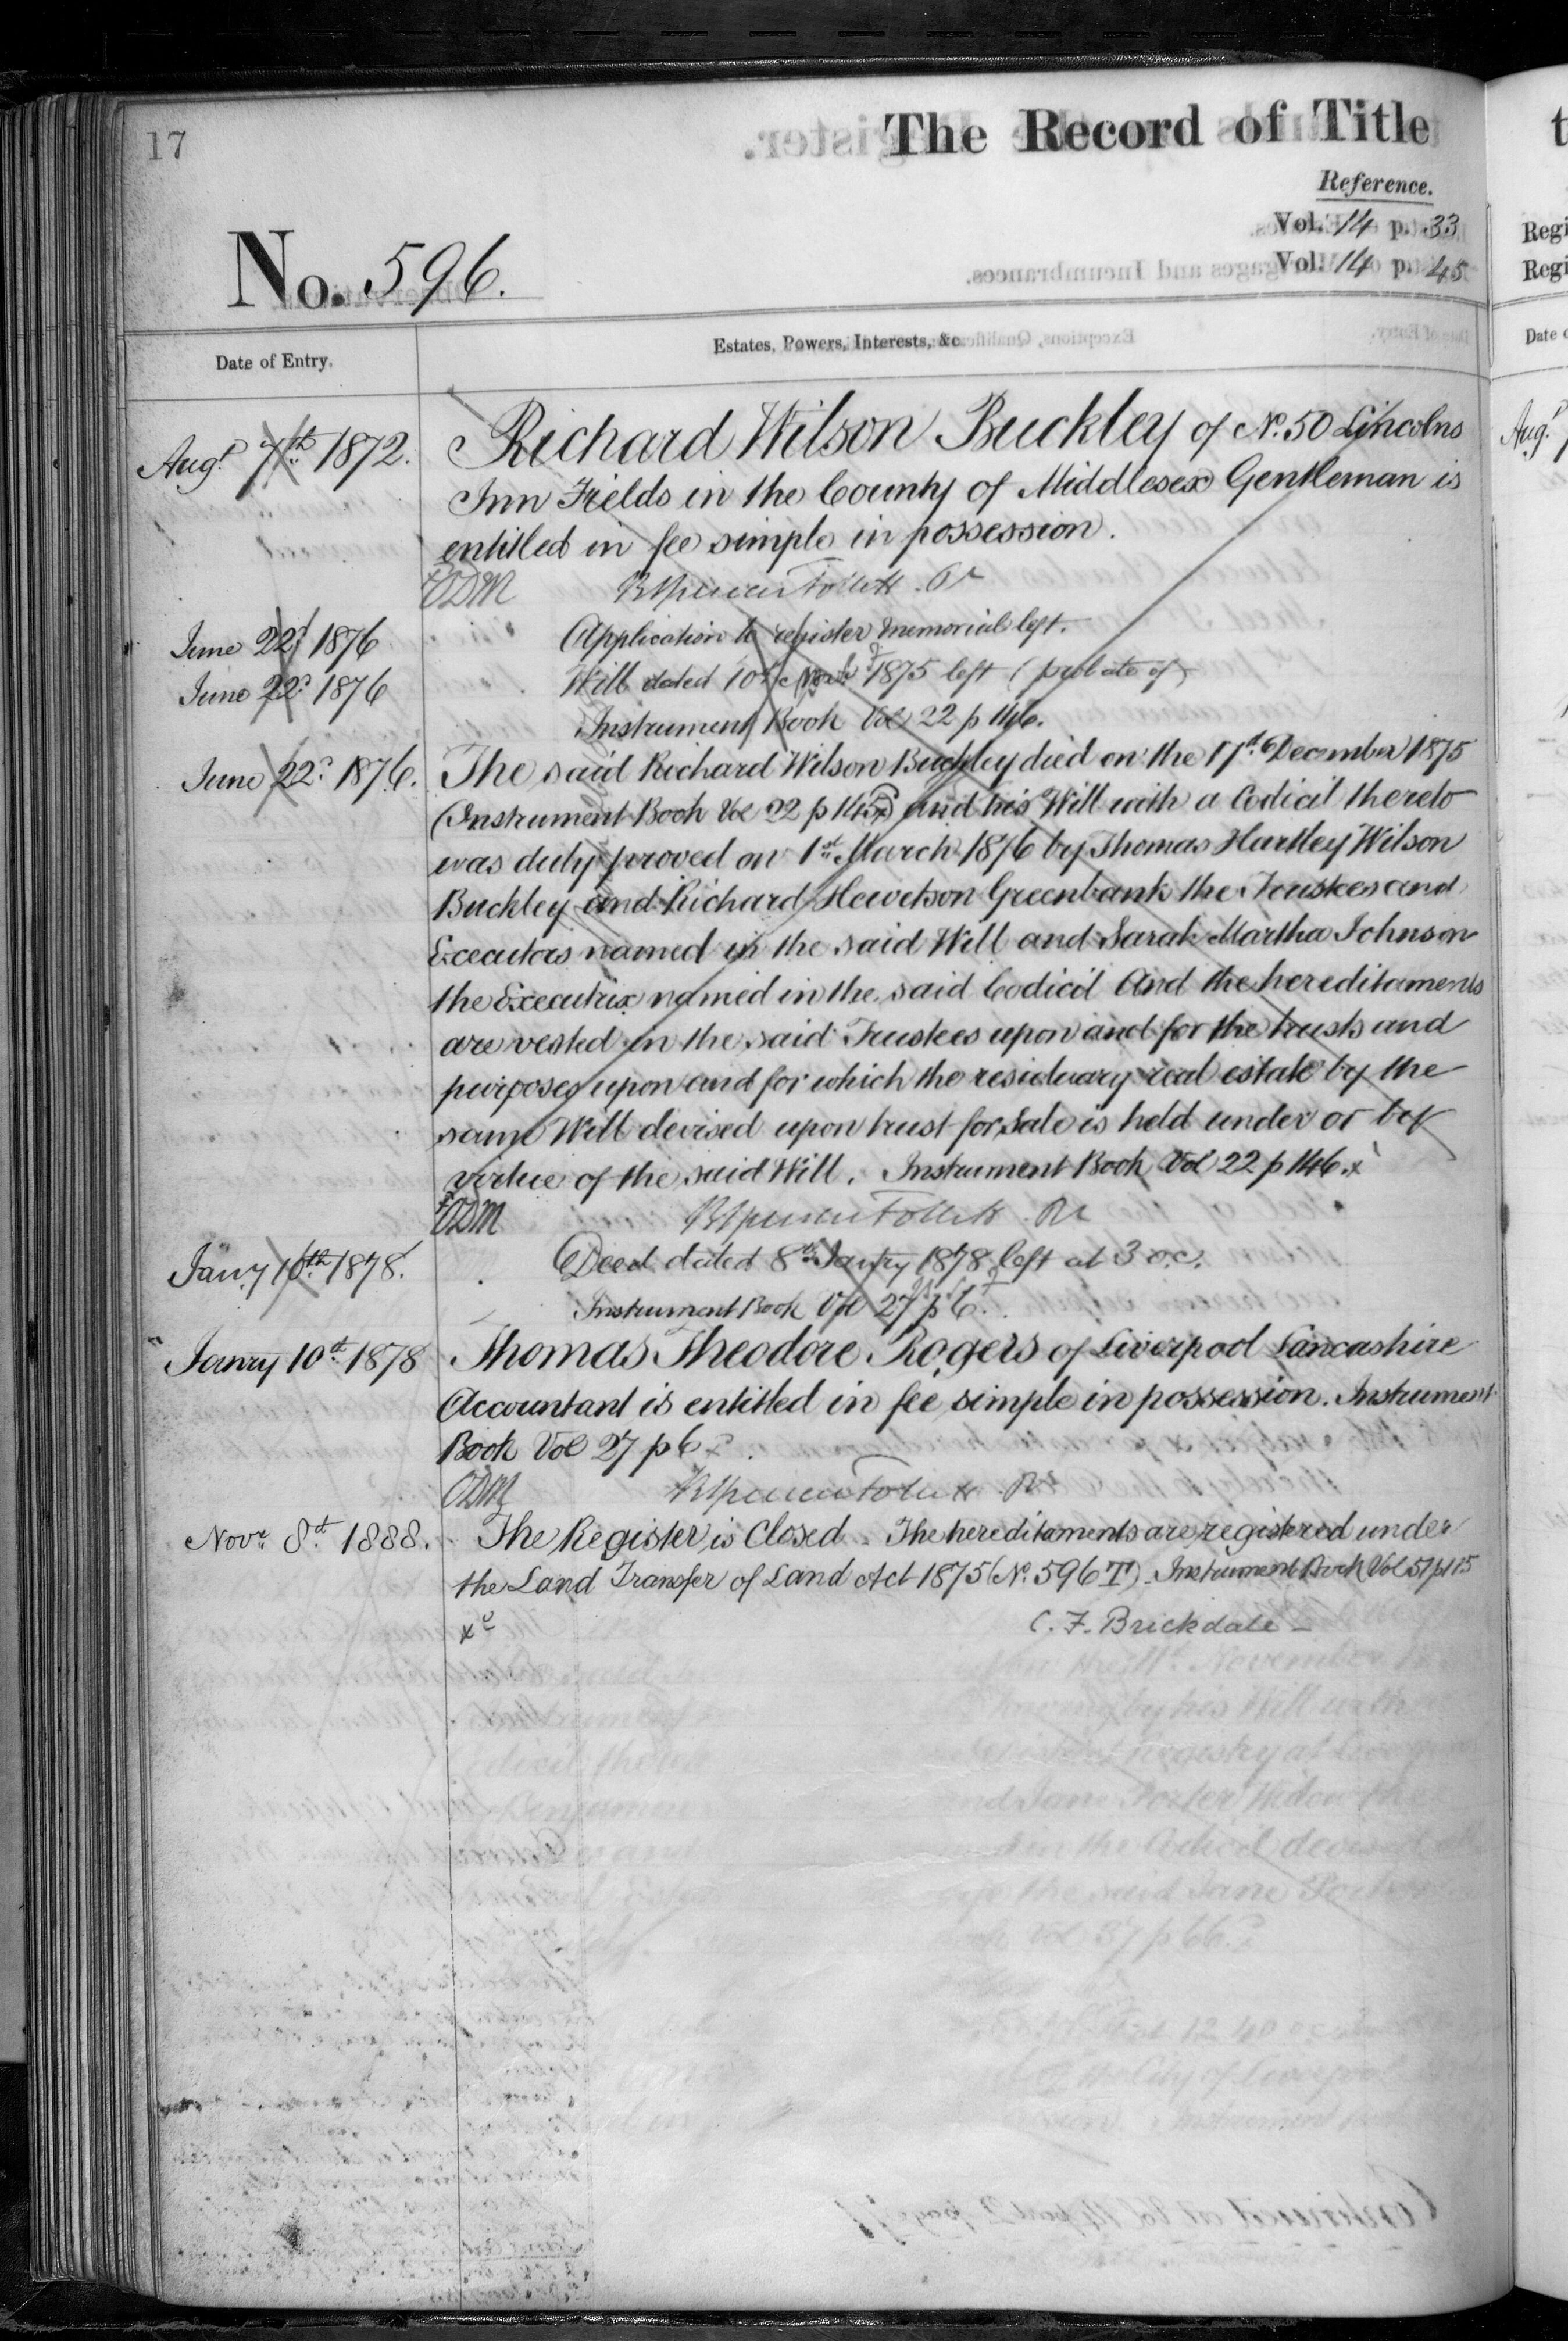 17
The Record of Title
Reference.
Vol. 14 p. 33
Vol. 14 p. 45
No. 596.
Date of Entry.
Estates, Powers, Interests, &c.
Augt 7th 1872. Richard Wilson Buckley of No. 50 Lincolns
Inn Fields in the County of Middlesex Gentleman is
entitled in fee simple in possession.
ODM
June 22d 1876 Application to register memorial left.
June 22d 1876 Will dated 10th 1875 left (probate of)
Instrument Book Vol 22 p 146.
June 22d 1876. The said Richard Wilson Buckley died on the 17th December 1875
(Instrument Book Vol 22 p 145) and his Will with a Codicil thereto
was duly proved on 1st March 1876 by Thomas Hartley Wilson
Buckley and Richard Hewetson Greenbank the Trustees and
Executors named in the said Will and Sarah Martha Johnson
the Executrix named in the said Codicil And the hereditaments
are vested in the said Trustees upon and for the trusts and
purposes upon and for which the residuary real estate by the
same Will devised upon trust for Sale is held under or by
virtue of the said Will. Instrument Book Vol 22 p 146.
ODM
Jany 10th 1878. Deed dated 8th Janry 1878 left at 3 o.c.
Instrument Book Vol 27 p 6.
Janry 10th 1878 Thomas Theodore Rogers of Liverpool Lancashire
Accountant is entitled in fee simple in possession. Instrument
Book Vol 27 p 6
ODM
Novr 8th 1888. The Register is Closed. The hereditaments are registered under
the Land Transfer of Land Act 1875 (No. 596 T). Instrument Book Vol 51 p 115
C. F. Brickdale
t
Regi
Regi
Date o
Aug.